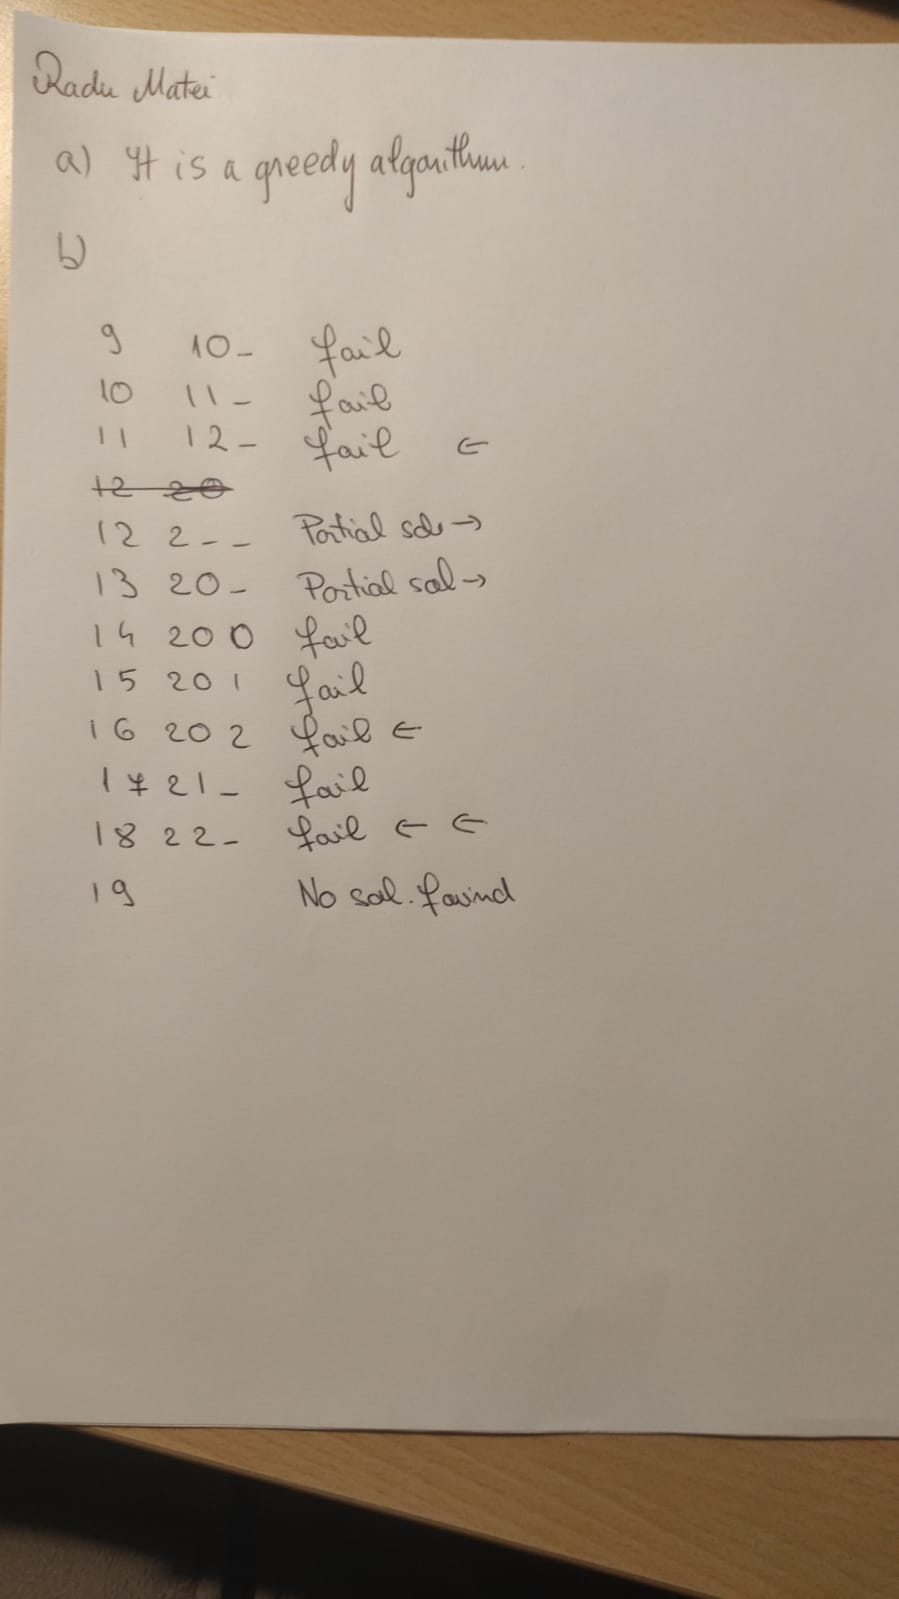 Radu Matei
a) It is a greedy algorithm.
b)
9 10_ fail
10 11_ fail
11 12_ fail ←
12 20
12 2__ Partial sol →
13 20_ Partial sol →
14 200 fail
15 201 fail
16 202 fail ←
17 21_ fail
18 22_ fail ← ←
19 No sol. found